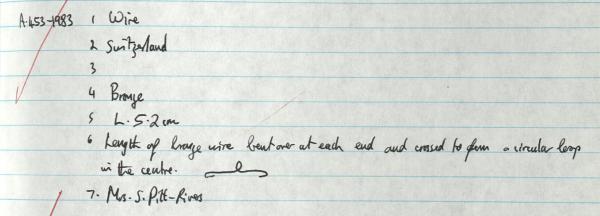 A.453-1983 1 Wire
2 Switzerland
3
4 Bronze
5 L. 5.2 cm
6 Length of bronze wire bent over at each end and crossed to form a circular loop
in the centre.
7. Mrs. S. Pitt-Rivers